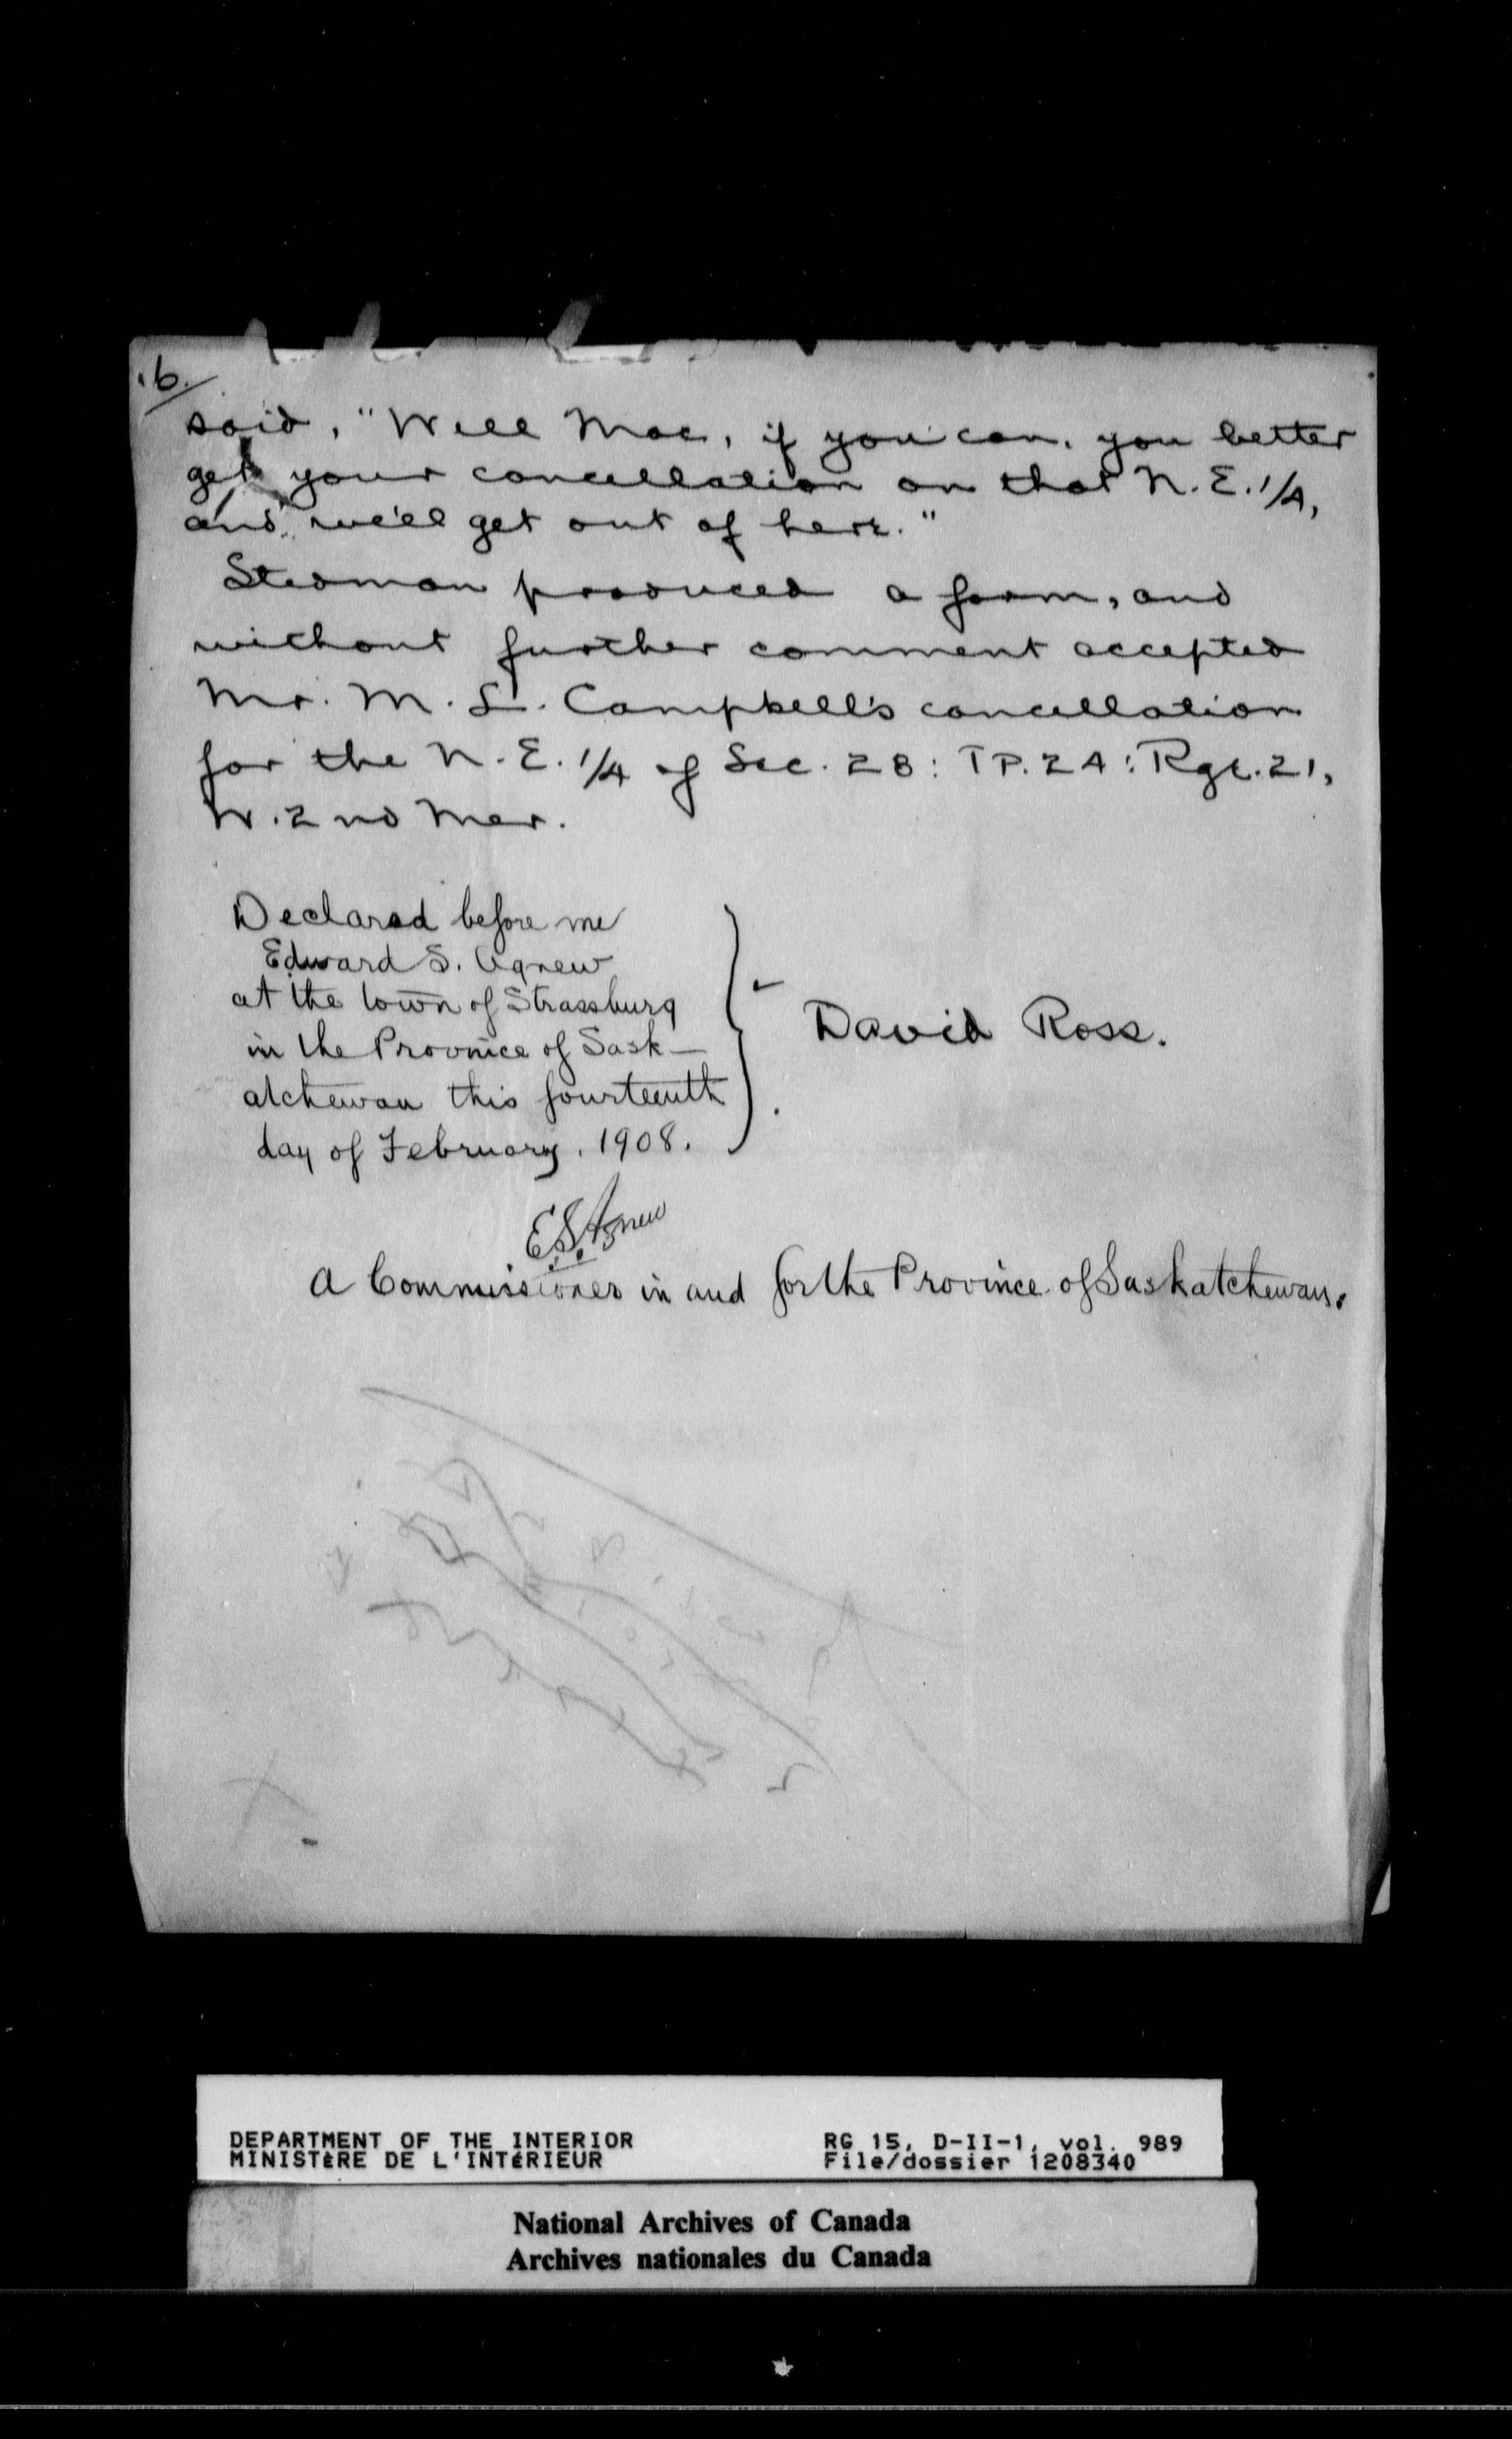 6.
said, "Well Mac, if you can, you better
get your cancellation on that N.E. 1/4,
and we'll get out of here."
Stedman produced a form, and
without further comment accepted
Mr. M. L. Campbell's cancellation
for the N.E. 1/4 of Sec. 28: TP. 24: Rge. 21,
W. 2nd Mer.
Declared before me
Edward S. Agnew
at the town of Strassburg
in the Province of Sask-
atchewan this fourteenth
day of February, 1908.
David Ross.
E.S. Agnew
A Commissioner in and for the Province of Saskatchewan.
DEPARTMENT OF THE INTERIOR
MINISTÈRE DE L'INTÉRIEUR
RG 15, D-II-1, vol. 989
File/dossier 1208340
National Archives of Canada
Archives nationales du Canada